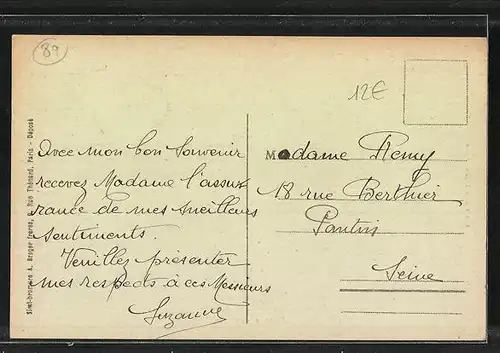 89
12€
Avec mon bon Souvenir
recevez Madame l'assu-
rance de mes meilleurs
sentiments.
Veuillez présenter
mes respects à ces Messieurs
Suzanne
Madame Remy
18 rue Berthier
Pantin
Seine
Simi-bromure A. Breger frères, 9, Rue Thénard, Paris - Déposé